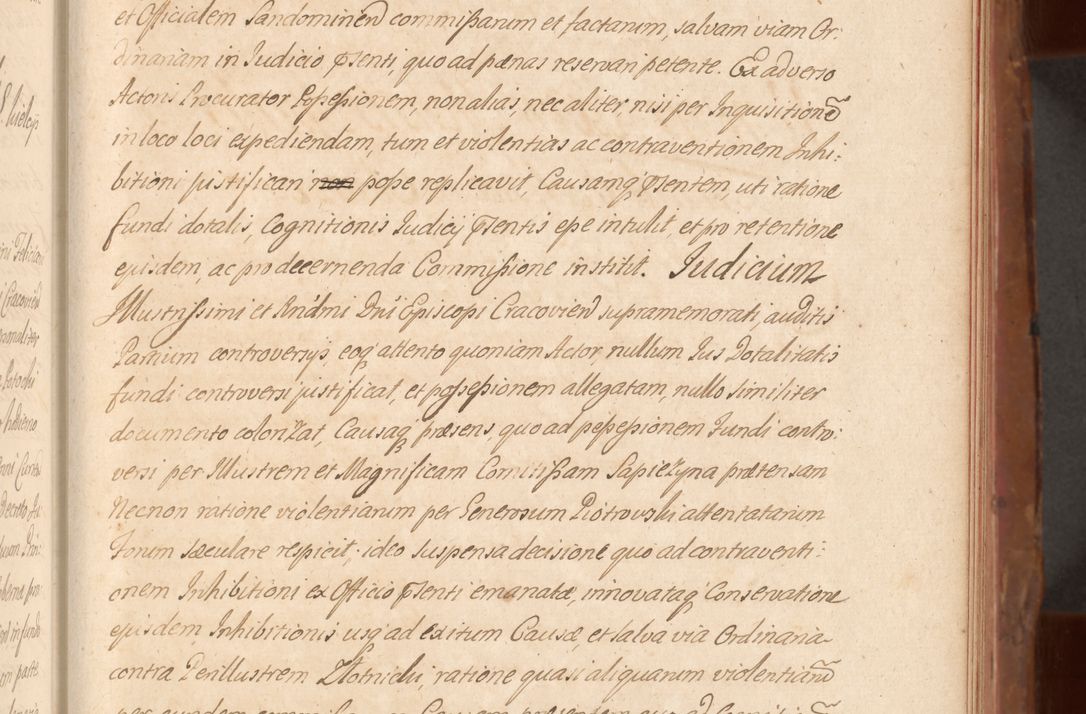 et Officialem Sandominen commißarum et factarum, salvam viam Or:
dinariam in Judicio p̄senti, quo ad pænas reservari petente. Ex adverso
Actoris Procurator Poßeßionem, non alias, nec aliter, nisi per Inquisitione͂
in loco loci expediendam, tum et violentias ac contraventionem Inhi:
bitioni justificari non poße replicavit, Causamq p̄sentem, uti ratione
fundi dotalis, Cognitionis Judicij p̄sentis eße intulit, et pro retentione
ejusdem, ac pro decernenda Commißione institit. Judicium
Illustrißimi et Rndmi Dni Episcopi Cracovien supramemorati, auditis
Partium controversijs, eoq attento quoniam Actor nullum Jus Dotalitatis
fundi controversi justificat, et poßeßionem allegatam, nullo similiter
documento colorizat, Causaq præsens, quo ad poßeßionem Fundi contro:
versi per Illustrem et Magnificam Comitißam Sapieżyna prætensam
Necnon ratione violentiarum per Generosum Piotrowski attentatarum
Forum sæculare respicit, ideo suspensa decisione quo ad contraventi:
onem Inhibitioni ex Officio p̄senti emanatæ, innovataq Conservatione
ejusdem Inhibitionis usq ad exitum Causæ, et salva via Ordinaria
contra Perillustrem Złotnicki, ratione quasi aliquarum violentiaru͂